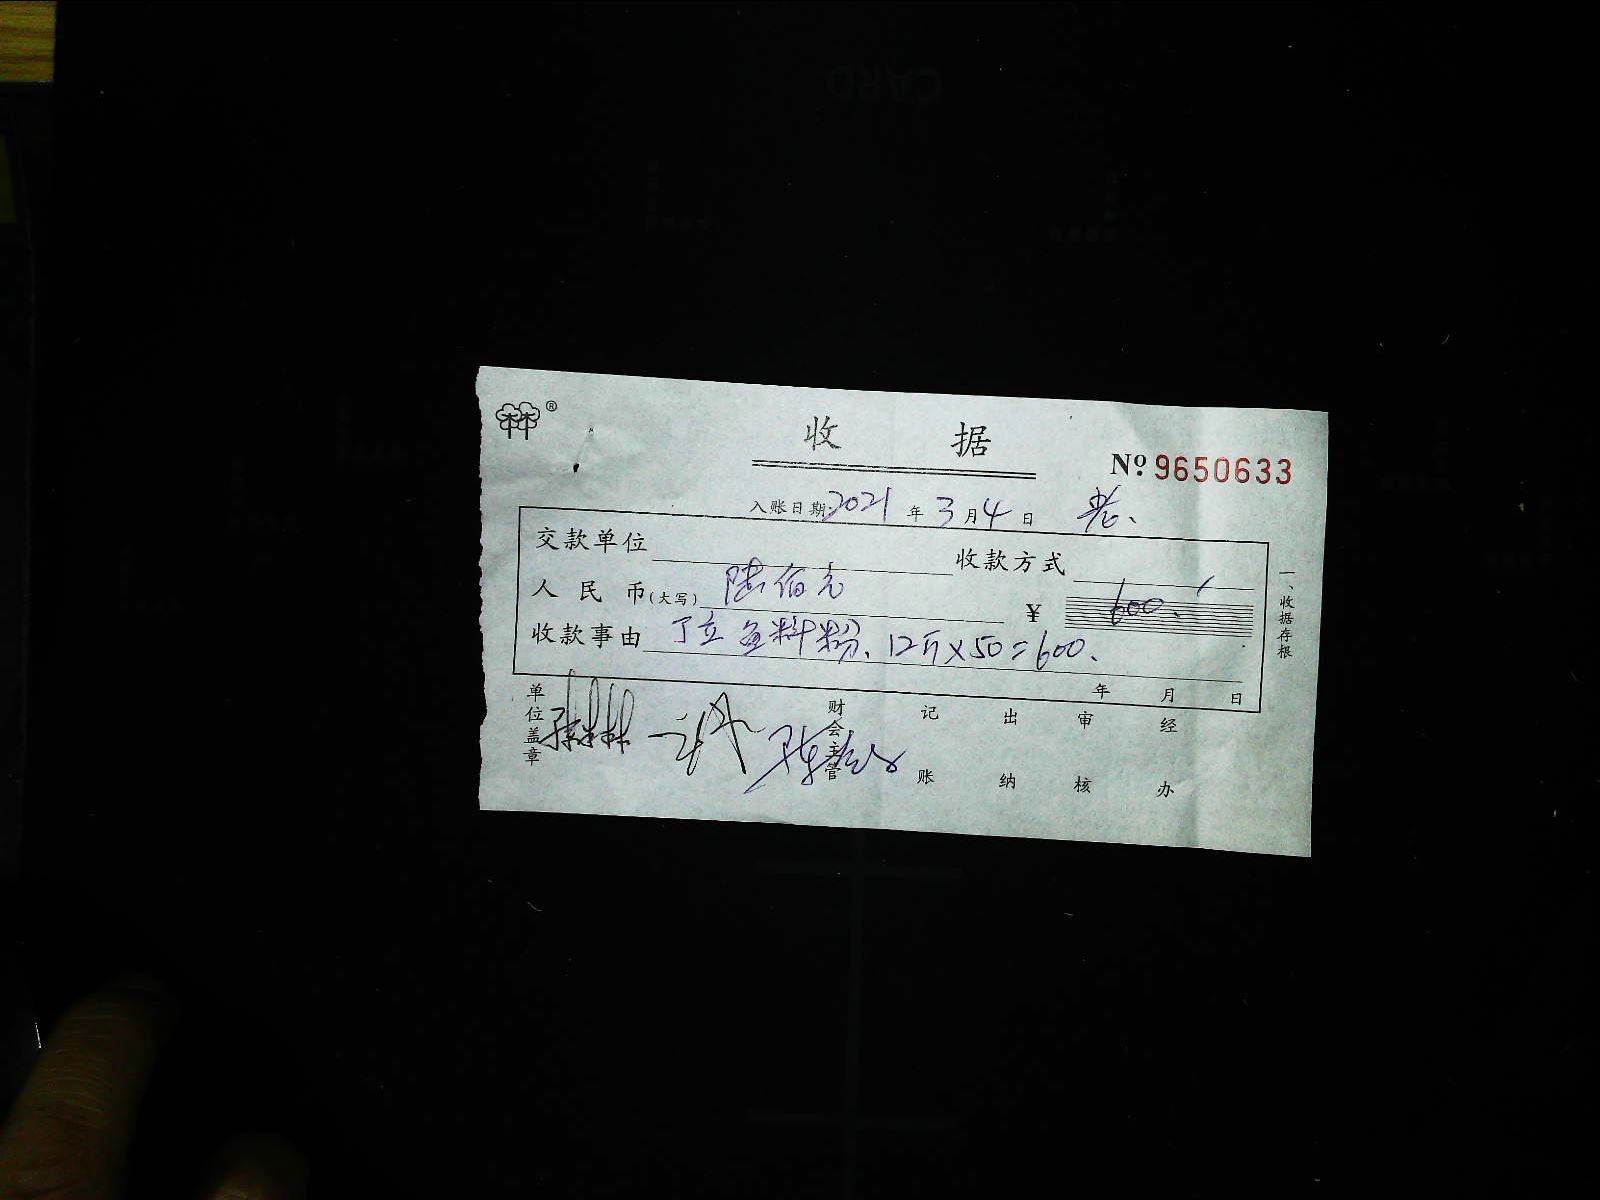 CARD
林 ®
收 据
Nº 9650633
入账日期:2021 年 3 月 4 日 老、
交款单位 收款方式
人民币(大写) 陆佰元 ¥ 600.
收款事由 丁立鱼料粉、12斤×50=600、
年 月 日
单位盖章 财会主管 记账 出纳 审核 经办
一、收据存根